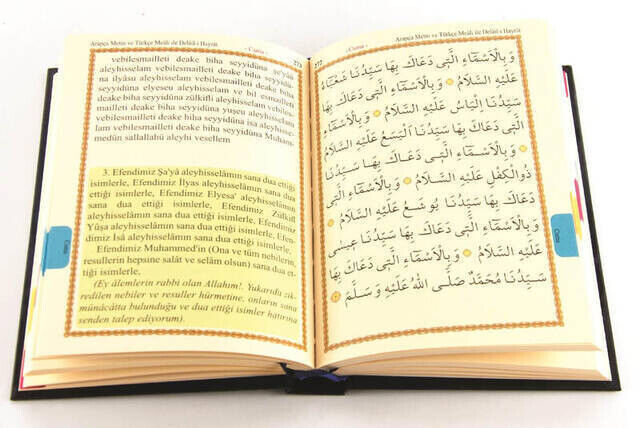 Arapça Metin ve Türkçe Meâli ile Delâil-i Hayrât
- Cuma -
273
vebilesmailleti deake biha seyyidüna şe'yâü
aleyhisselam vebilesmailleti deake biha seyyidü-
na ilyâsu aleyhisselam vebilesmailleti deake biha
seyyidüna elyeseu aleyhisselam ve bil esmailleti
deake biha seyyidüna zülkifli aleyhisselam vebilesmailleti
deake biha seyyidüna yuşeu aleyhisselam
vebilesmailleti deake biha seyyidüna isa aleyhisse-
lam vebilesmailleti deake biha seyyidüna Muham-
medün sallallahü aleyhi vesellem
3. Efendimiz Şa'yâ aleyhisselâmın sana dua ettiği
isimlerle, Efendimiz İlyas aleyhisselâmın sana dua
ettiği isimlerle, Efendimiz Elyesa' aleyhisselâmın
sana dua ettiği isimlerle, Efendimiz Zülkifl
aleyhisselâmın sana dua ettiği isimlerle, Efendimiz
Yûşa aleyhisselâmın sana dua ettiği isimlerle, Efen-
dimiz Îsâ aleyhisselâmın sana dua ettiği isimlerle,
Efendimiz Muhammed'in (Ona ve tüm nebilerin,
resullerin hepsine salât ve selâm olsun) sana dua et-
tiği isimlerle,
(Ey âlemlerin rabbi olan Allahım!. Yukarıda zik-
redilen nebiler ve resuller hürmetine, onların sana
münâcâatta bulunduğu ve dua ettiği isimler hatırına
senden talep ediyorum).
Cuma
272
- Cuma -
Arapça Metin ve Türkçe Meâli ile Delâil-i Hayrât
وَبِالْاَسْمَاءِ الَّتِى دَعَاكَ بِهَا سَيِّدُنَا شَعْيَاءُ
عَلَيْهِ السَّلَامُ وَبِالْاَسْمَاءِ الَّتِى دَعَاكَ بِهَا
سَيِّدُنَا اِلْيَاسُ عَلَيْهِ السَّلَامُ وَبِالْاَسْمَاءِ
الَّتِى دَعَاكَ بِهَا سَيِّدُنَا الْيَسَعُ عَلَيْهِ السَّلَامُ
وَبِالْاَسْمَاءِ الَّتِى دَعَاكَ بِهَا سَيِّدُنَا
ذُو الْكِفْلِ عَلَيْهِ السَّلَامُ وَبِالْاَسْمَاءِ الَّتِى
دَعَاكَ بِهَا سَيِّدُنَا يُوشَعُ عَلَيْهِ السَّلَامُ
وَبِالْاَسْمَاءِ الَّتِى دَعَاكَ بِهَا سَيِّدُنَا عِيسَى
عَلَيْهِ السَّلَامُ وَبِالْاَسْمَاءِ الَّتِى دَعَاكَ بِهَا
سَيِّدُنَا مُحَمَّدٌ صَلَّى اللهُ عَلَيْهِ وَسَلَّمَ
Cuma